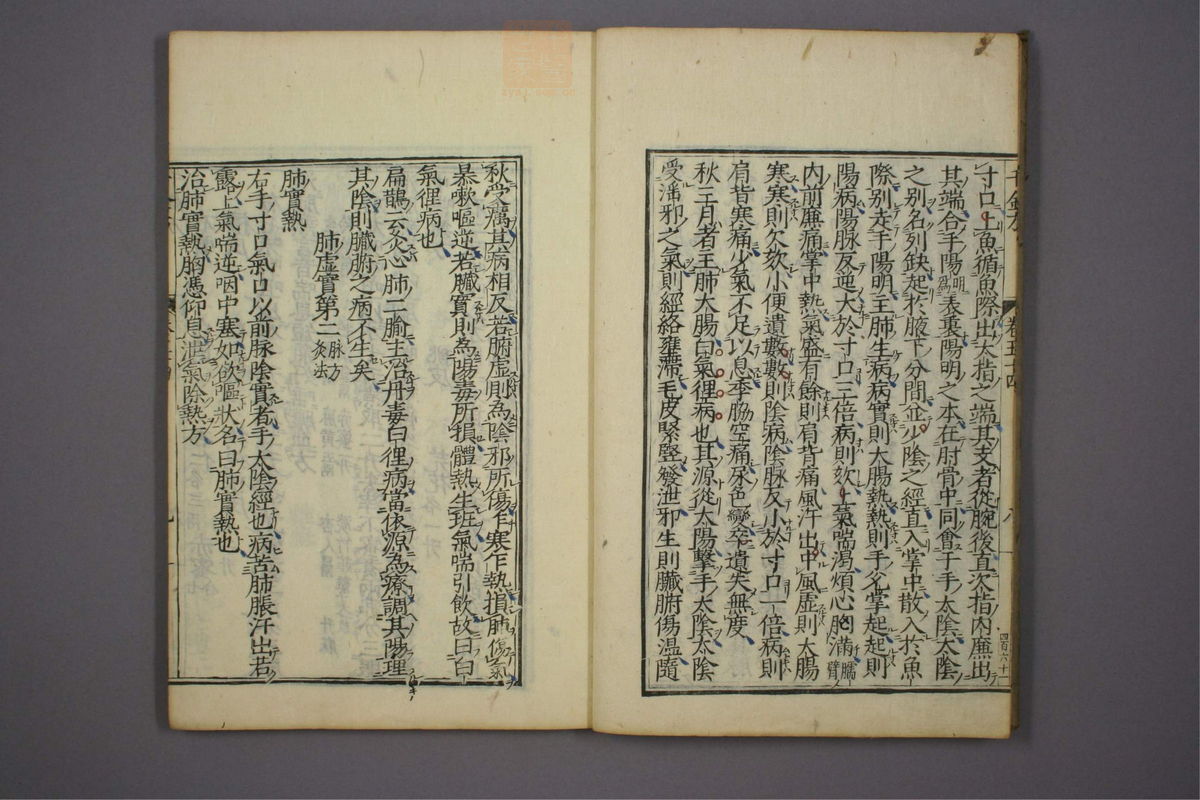 寸口上魚循魚際出大指之端其支者從腕後直次指內廉出
其端合手陽明爲表裏陽明之本在肘骨中同會于手太陰太陰
之別名列缺起於腋下分間並少陰之經直入掌中散入於魚
際別走手陽明主肺生病病實則大腸熱熱則手兊掌起起則
陽病陽脉反逆大於寸口三倍病則欬上氣喘渴煩心胷滿臑臂
內前廉痛掌中熱氣盛有餘則肩背痛風汗出中風虛則大腸
寒寒則欠欬小便遺數數則陰病陰脉反小於寸口一倍病則
肩背寒痛少氣不足以息季脇空痛尿色變卒遺失無度
秋三月者主肺大腸白氣狸病也其源從太陽擊手太陰太陰
受淫邪之氣則經絡壅滯毛皮緊竪發泄邪生則臟腑傷溫隨
四百六十一
秋受癘其病相反若腑虛則爲陰邪所傷乍寒乍熱損肺傷氣
暴嗽嘔逆若臟實則爲陽毒所損體熱生班氣喘引飲故曰白
氣狸病也
扁鵲云灸心肺二腧主治丹毒白狸病當依源爲療調其陽理
其陰則臟腑之病不生矣
肺虛實第二 脉方灸法
肺實熱
右手寸口氣口以前脉陰實者手太陰經也病苦肺脹汗出若
露上氣喘逆咽中塞如欲嘔狀名曰肺實熱也
治肺實熱胸憑仰息泄氣除熱方